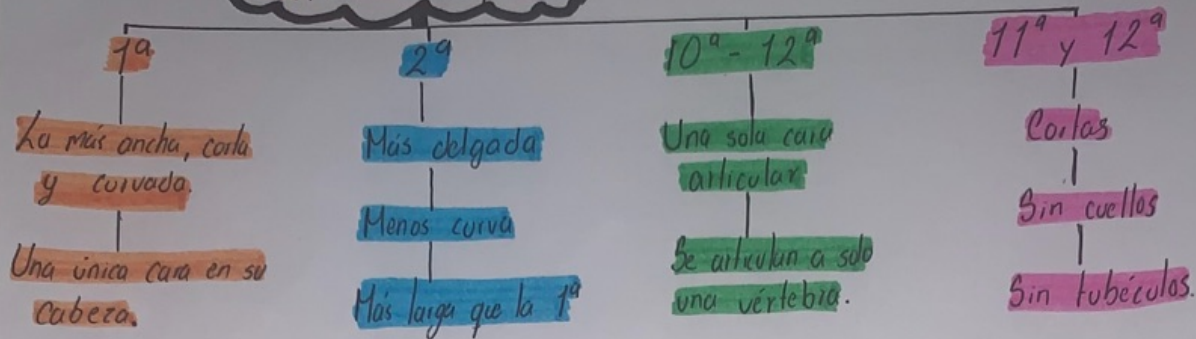 1ª
La más ancha, corta
y curvada.
Una única cara en su
cabeza.
2ª
Más delgada
Menos curva
Más larga que la 1ª
10ª - 12ª
Una sola cara
articular
Se articulan a solo
una vértebra.
11ª y 12ª
Cortas
Sin cuellos
Sin tubéculos.